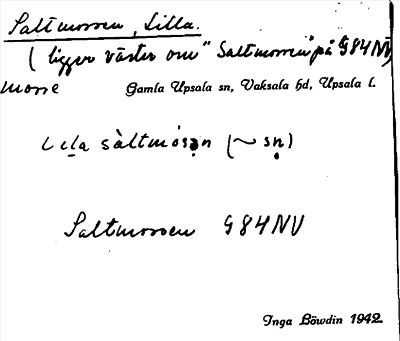 Saltmossen, Lilla.
(ligger väster om "Saltmossen" på G84NV)
Mosse Gamla Upsala sn, Vaksala hd, Upsala l.
lila sàltmósən (~ sṇ)
Saltmossen G84NV
Inga Böwdin 1942.